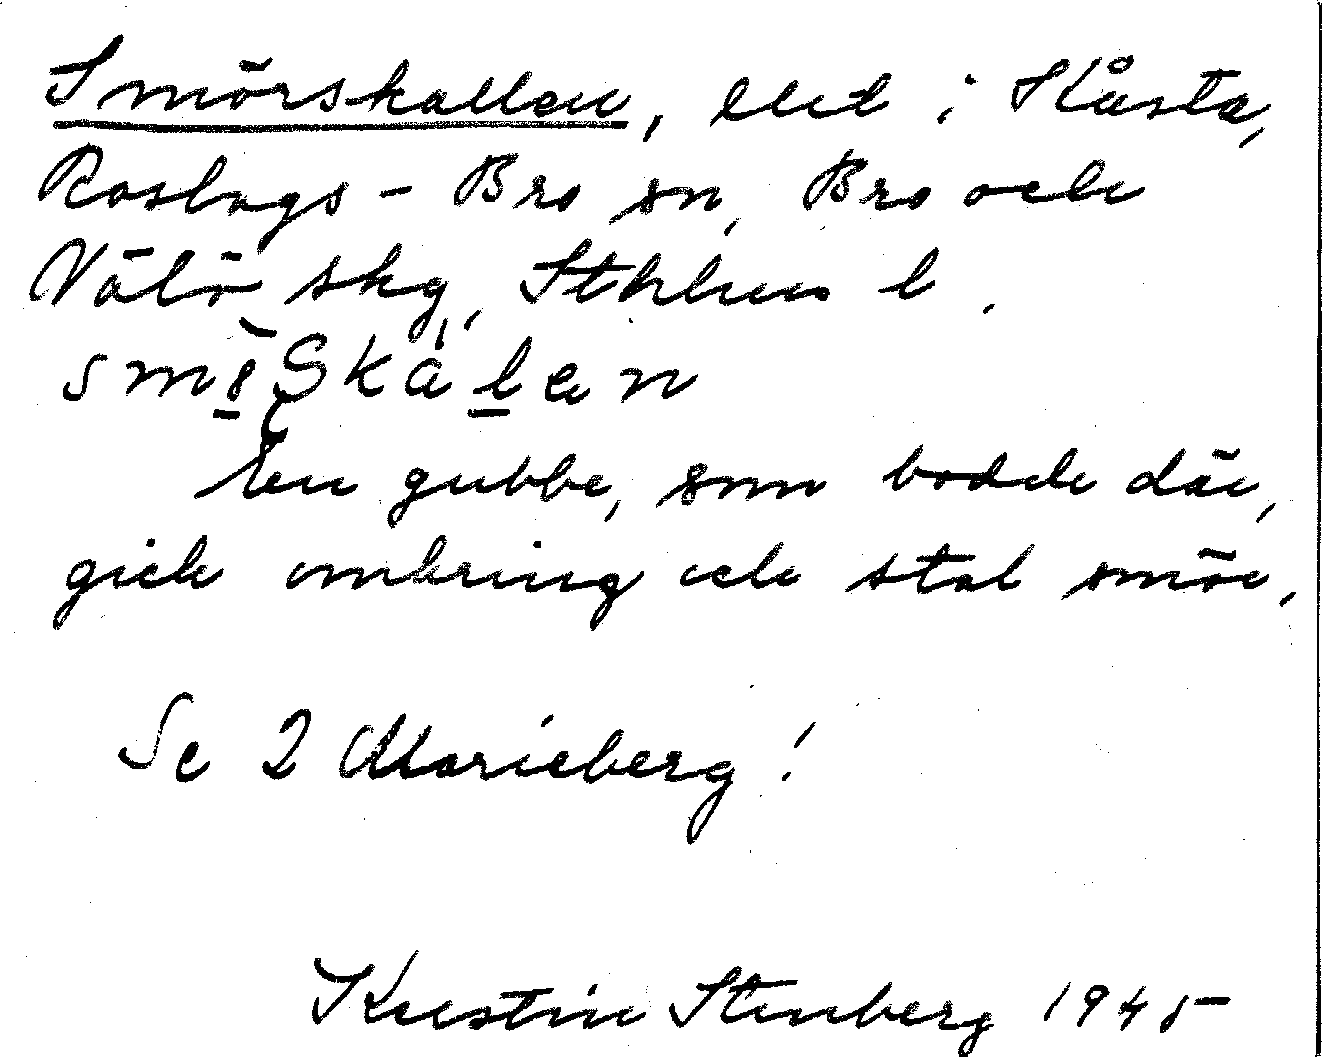 Smörskallen, lht i Kåsta,
Roslags-Bro sn, Bro och
Vätö skg, Sthlms l.
En gubbe, som bodde där,
gick omkring och stal smör.
Se 2 Marieberg!
Kerstin Stenberg 1945